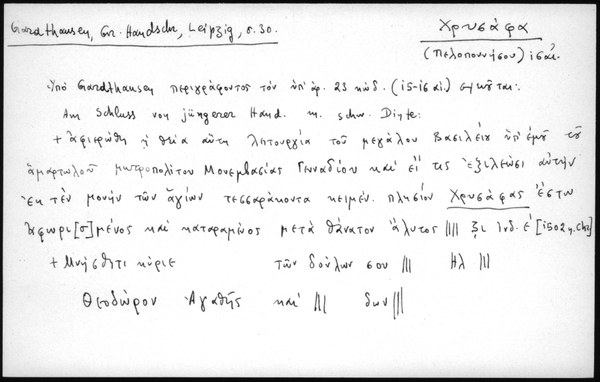 Gardthausen, Gr. Handschr, Leipzig, σ. 30.
Χρυσάφα
(Πελοποννήσου) ις αἰ.
Ὑπὸ Gardthausen περιγράφοντος τὸν ὑπ' ἀρ. 23 κώδ. (ι5-ι6 αἰ.)
Am Schluss von jüngerer Hand. m. schw. Dinte:
+ ἀφιερώθη ἡ θεία αὕτη λητουργία τοῦ μεγάλου Βασιλείου ὑπ' ἐμοῦ τοῦ
ἁμαρτωλοῦ μητροπολίτου Μονεμβασίας Γενναδίου καὶ εἴ τις ἐξιλεώσι αὐτὴν
ἐκ τὲν μονὴν τῶν ἁγίων τεσσαράκοντα κειμέν. πλησίον Χρυσάφας ἔστω
ἀφωρι[σ]μένος καὶ καταραμένος μετὰ θάνατον ἄλυτος |||| ξι ἰνδ. ἐ [1502 n. Chr]
+ Μνήσθητι κύριε τῶν δούλων σου ||| Ηλ |||
Θεοδώρου Ἀγαθῆς καὶ ||| δων |||